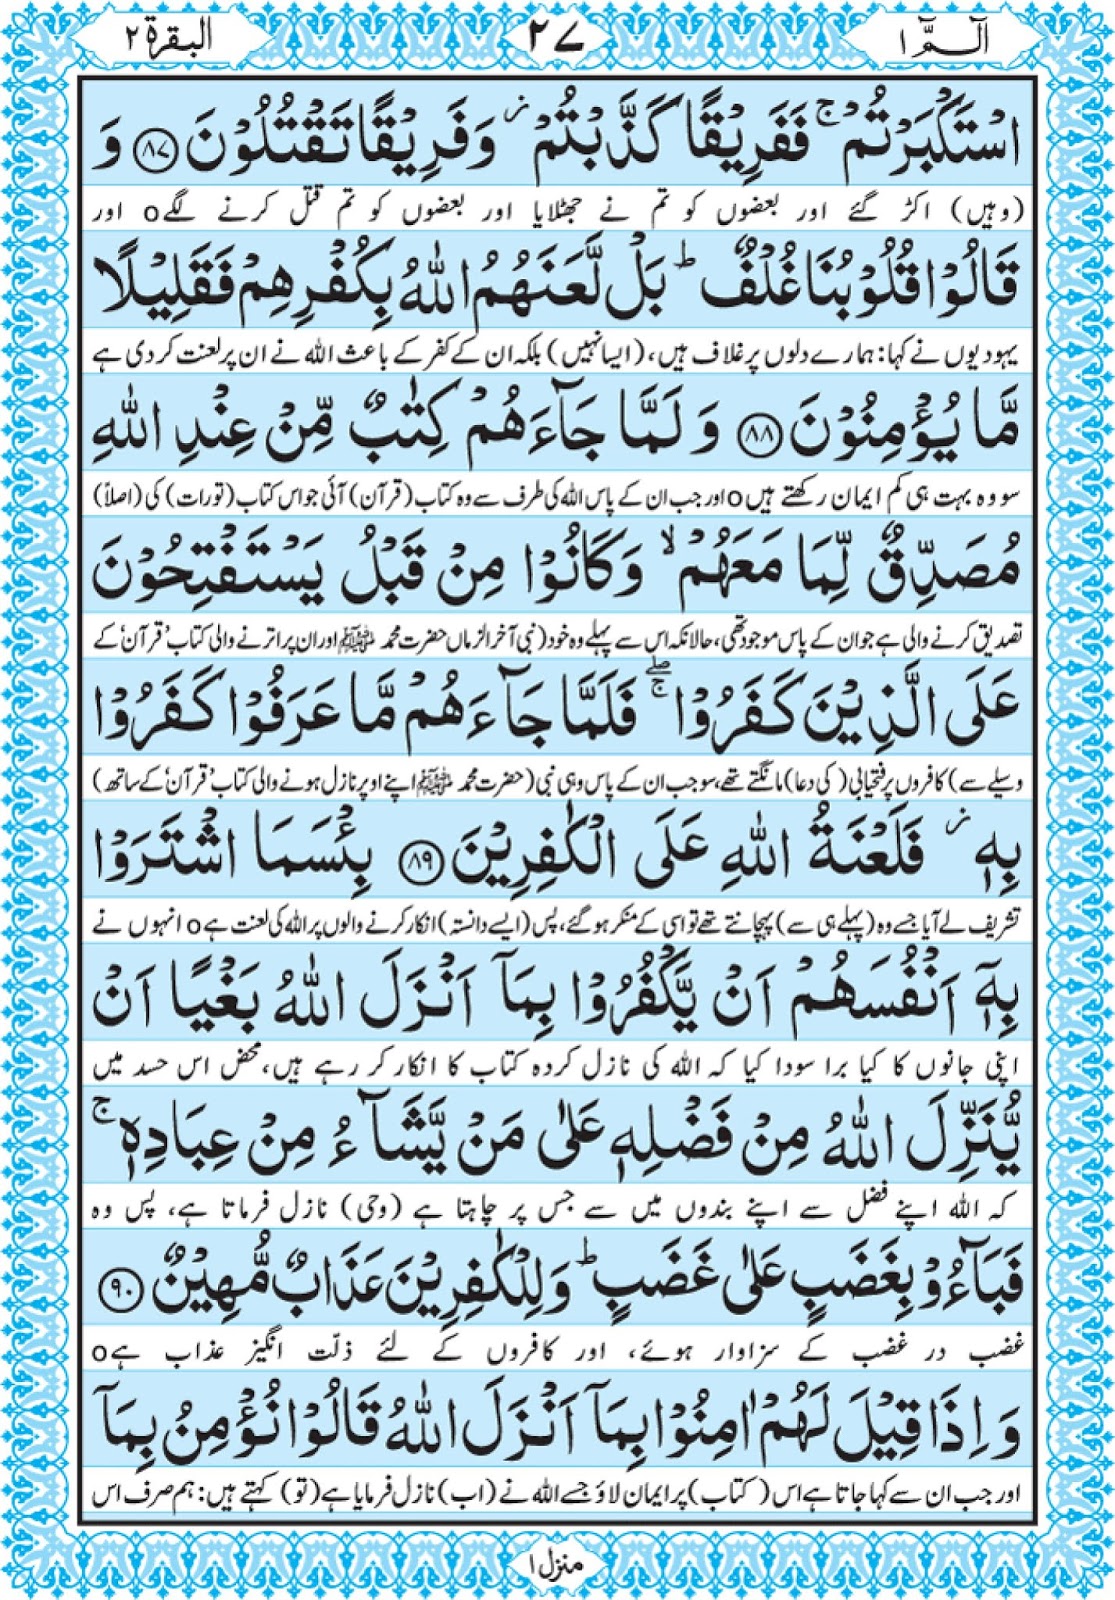 الٓـمّٓ ۱
۲۷
البقرة ۲
اسْتَكْبَرْتُمْ ۚ فَفَرِيْقًا كَذَّبْتُمْ ؗ وَ فَرِيْقًا تَقْتُلُوْنَ ﴿۸۷﴾ وَ
(وہیں) اکڑ گئے اور بعضوں کو تم نے جھٹلایا اور بعضوں کو تم قتل کرنے لگے o اور
قَالُوْا قُلُوْبُنَا غُلْفٌ ؕ بَلْ لَّعَنَهُمُ اللّٰهُ بِكُفْرِهِمْ فَقَلِيْلًا
یہودیوں نے کہا: ہمارے دلوں پر غلاف ہیں، (ایسا نہیں) بلکہ ان کے کفر کے باعث اللہ نے ان پر لعنت کر دی ہے
مَّا يُؤْمِنُوْنَ ﴿۸۸﴾ وَ لَمَّا جَآءَهُمْ كِتٰبٌ مِّنْ عِنْدِ اللّٰهِ
سو وہ بہت ہی کم ایمان رکھتے ہیں o اور جب ان کے پاس اللہ کی طرف سے وہ کتاب (قرآن) آئی جو اس کتاب (تورات) کی (اصلاً)
مُصَدِّقٌ لِّمَا مَعَهُمْ ۙ وَ كَانُوْا مِنْ قَبْلُ يَسْتَفْتِحُوْنَ
تصدیق کرنے والی ہے جو ان کے پاس موجود تھی، حالانکہ اس سے پہلے وہ خود (نبی آخر الزماں حضرت محمد ﷺ اور ان پر اترنے والی کتاب 'قرآن' کے
عَلَى الَّذِيْنَ كَفَرُوْا ۖۚ فَلَمَّا جَآءَهُمْ مَّا عَرَفُوْا كَفَرُوْا
وسیلے سے) کافروں پر فتحیابی (کی دعا) مانگتے تھے، سو جب ان کے پاس وہی نبی (حضرت محمد ﷺ اپنے اوپر نازل ہونے والی کتاب 'قرآن' کے ساتھ)
بِهٖ ؗ فَلَعْنَةُ اللّٰهِ عَلَى الْكٰفِرِيْنَ ﴿۸۹﴾ بِئْسَمَا اشْتَرَوْا
تشریف لے آیا جسے وہ (پہلے ہی سے) پہچانتے تھے تو اسی کے منکر ہو گئے، پس (ایسے دانستہ) انکار کرنے والوں پر اللہ کی لعنت ہے o انہوں نے
بِهٖۤ اَنْفُسَهُمْ اَنْ يَّكْفُرُوْا بِمَاۤ اَنْزَلَ اللّٰهُ بَغْيًا اَنْ
اپنی جانوں کا کیا برا سودا کیا کہ اللہ کی نازل کردہ کتاب کا انکار کر رہے ہیں، محض اس حسد میں
يُّنَزِّلَ اللّٰهُ مِنْ فَضْلِهٖ عَلٰى مَنْ يَّشَآءُ مِنْ عِبَادِهٖ ۚ
کہ اللہ اپنے فضل سے اپنے بندوں میں سے جس پر چاہتا ہے (وحی) نازل فرماتا ہے، پس وہ
فَبَآءُوْ بِغَضَبٍ عَلٰى غَضَبٍ ؕ وَ لِلْكٰفِرِيْنَ عَذَابٌ مُّهِيْنٌ ﴿۹۰﴾
غضب در غضب کے سزاوار ہوئے، اور کافروں کے لئے ذلّت انگیز عذاب ہے o
وَ اِذَا قِيْلَ لَهُمْ اٰمِنُوْا بِمَاۤ اَنْزَلَ اللّٰهُ قَالُوْا نُؤْمِنُ بِمَاۤ
اور جب ان سے کہا جاتا ہے اس (کتاب) پر ایمان لاؤ جسے اللہ نے (اب) نازل فرمایا ہے (تو) کہتے ہیں: ہم صرف اس
منزل ۱